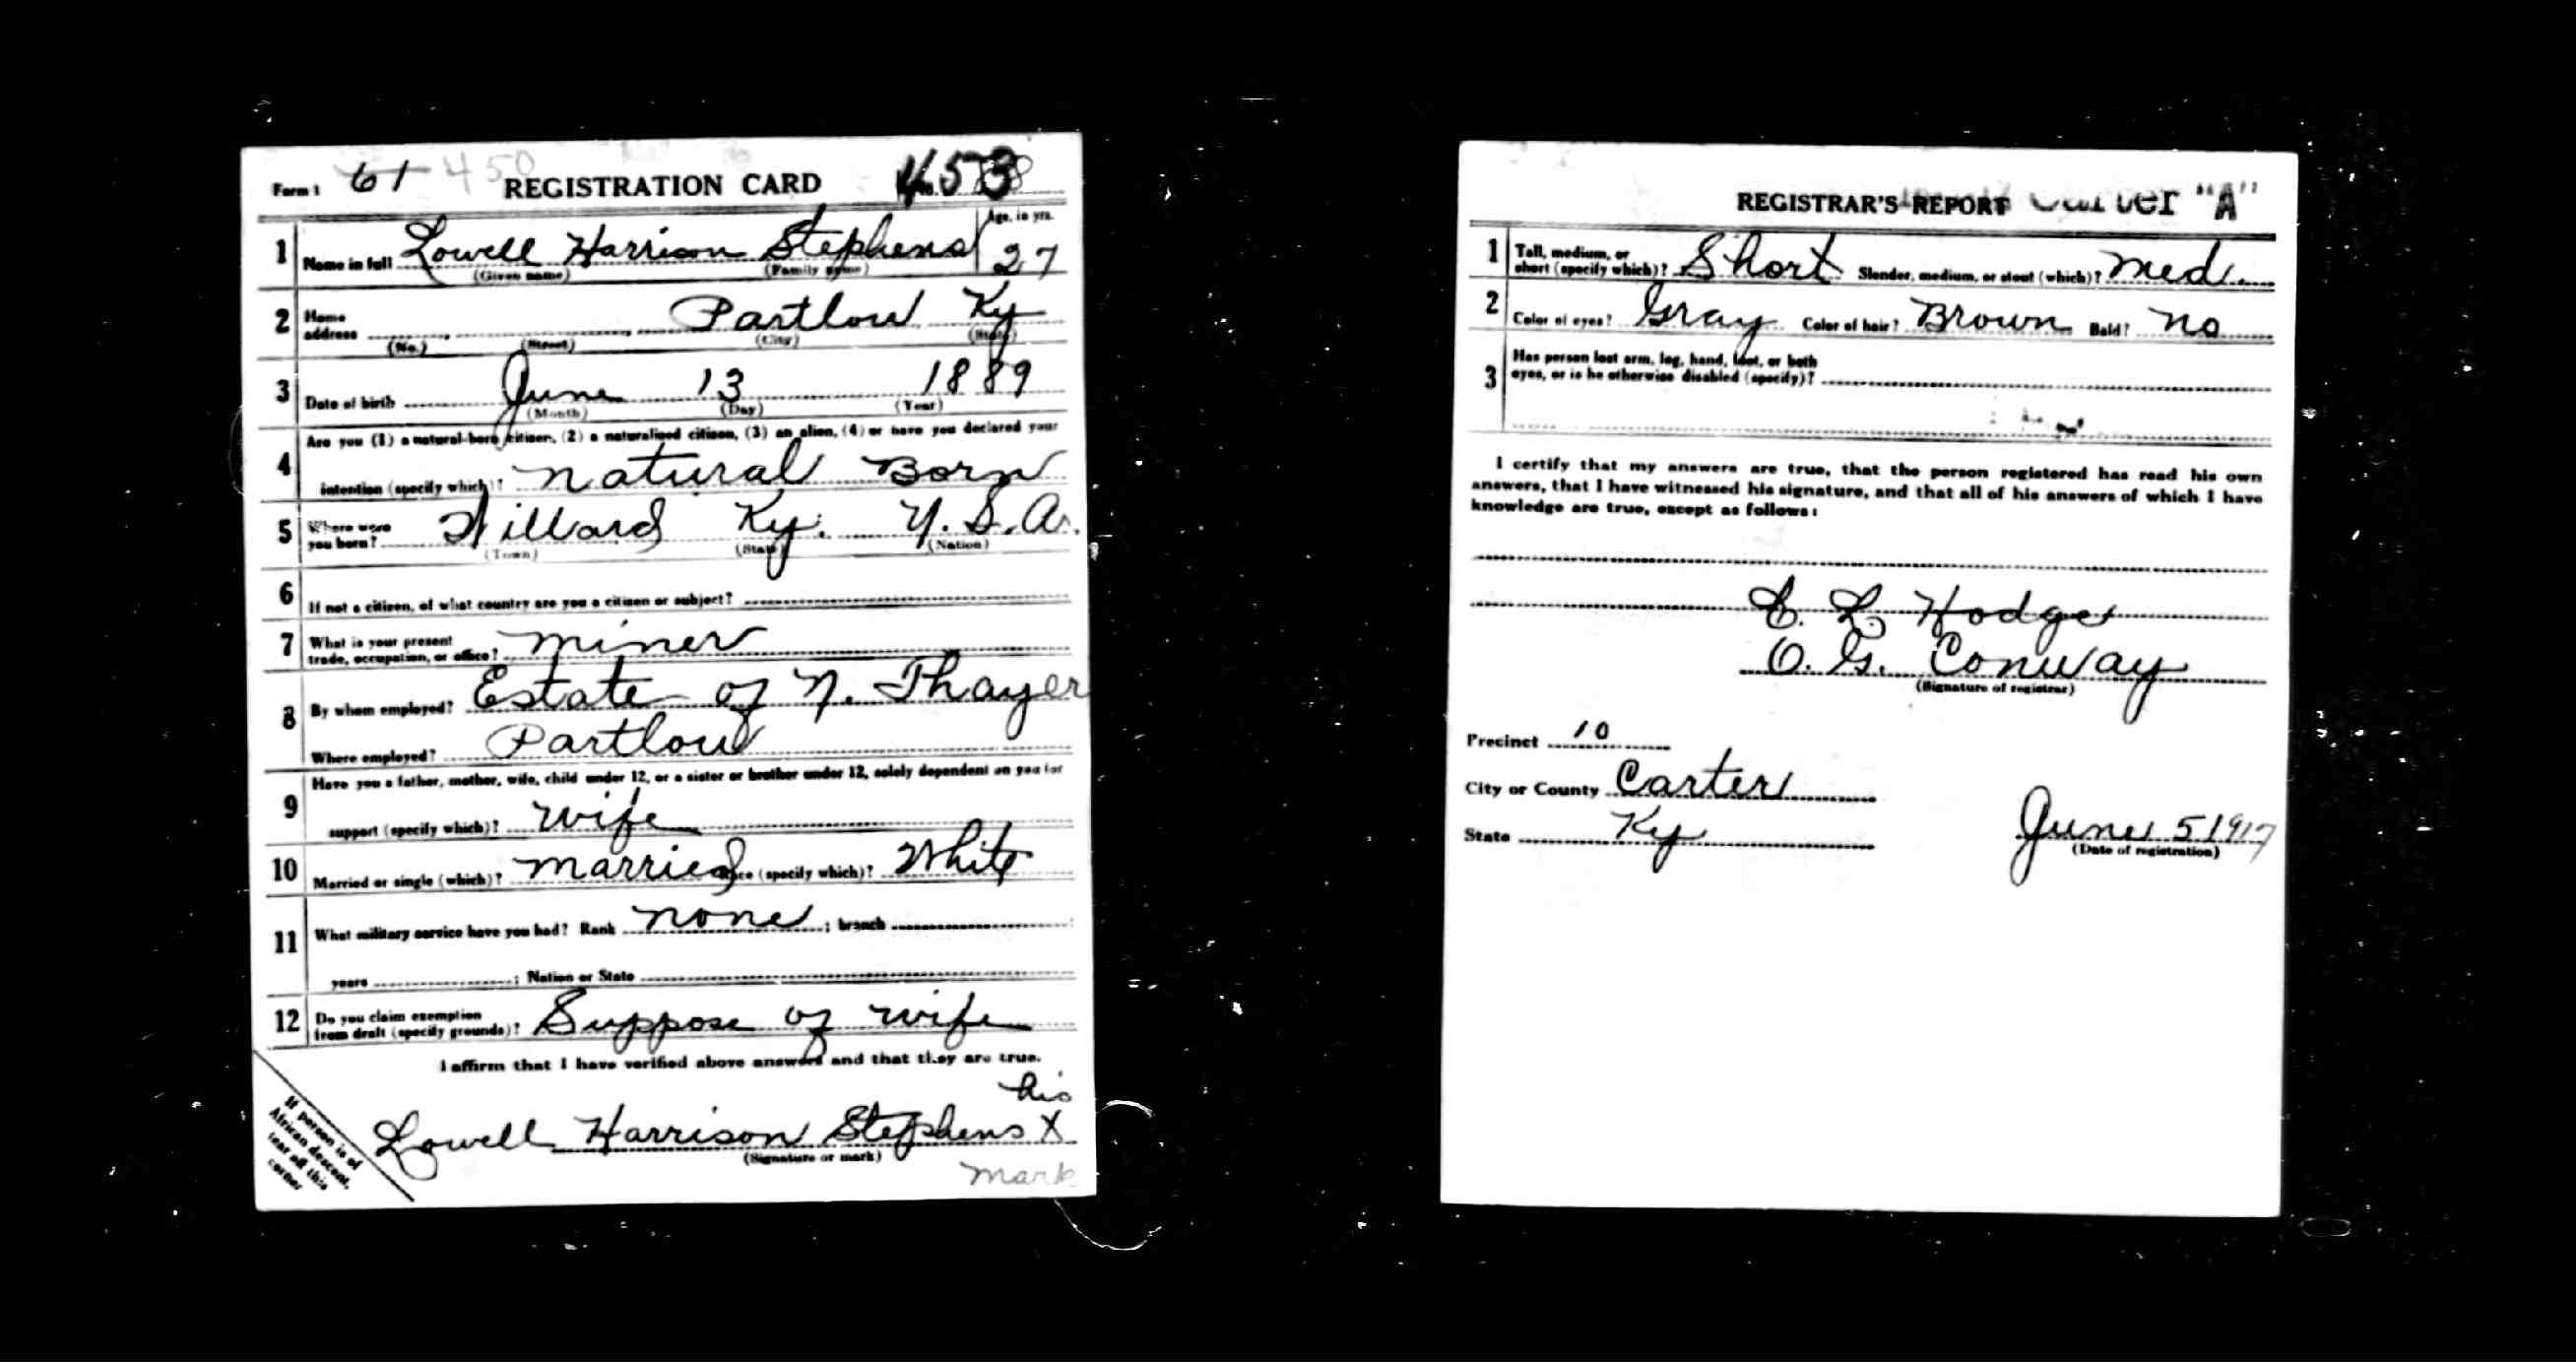 Form 1 61 450 REGISTRATION CARD 453
1 Name in full Lowell Harrison Stephens Age, in yrs. 27
(Given name) (Family name)
2 Home address Partlow Ky
(No.) (Street) (City) (State)
3 Date of birth June 13 1889
(Month) (Day) (Year)
4 Are you (1) a natural-born citizen, (2) a naturalized citizen, (3) an alien, (4) or have you declared your
intention (specify which)? natural Born
5 Where were you born? Willard Ky. U.S.A.
(Town) (State) (Nation)
6 If not a citizen, of what country are you a citizen or subject?
7 What is your present trade, occupation, or office? miner
8 By whom employed? Estate of N. Thayer
Where employed? Partlow
9 Have you a father, mother, wife, child under 12, or a sister or brother under 12, solely dependent on you for
support (specify which)? wife
10 Married or single (which)? married Race (specify which)? White
11 What military service have you had? Rank none ; branch
years ; Nation or State
12 Do you claim exemption from draft (specify grounds)? Suppose of wife
I affirm that I have verified above answers and that they are true.
his
Lowell Harrison Stephens X
(Signature or mark)
mark
If person is of
African descent,
tear off this
corner
REGISTRAR'S REPORT Carter "A"
1 Tall, medium, or short (specify which)? Short Slender, medium, or stout (which)? med.
2 Color of eyes? Gray Color of hair? Brown Bald? no
3 Has person lost arm, leg, hand, foot, or both
eyes, or is he otherwise disabled (specify)?
I certify that my answers are true, that the person registered has read his own
answers, that I have witnessed his signature, and that all of his answers of which I have
knowledge are true, except as follows:
E. L. Hodge
O. G. Conway
(Signature of registrar)
Precinct 10
City or County Carter
State Ky
June 5 1917
(Date of registration)